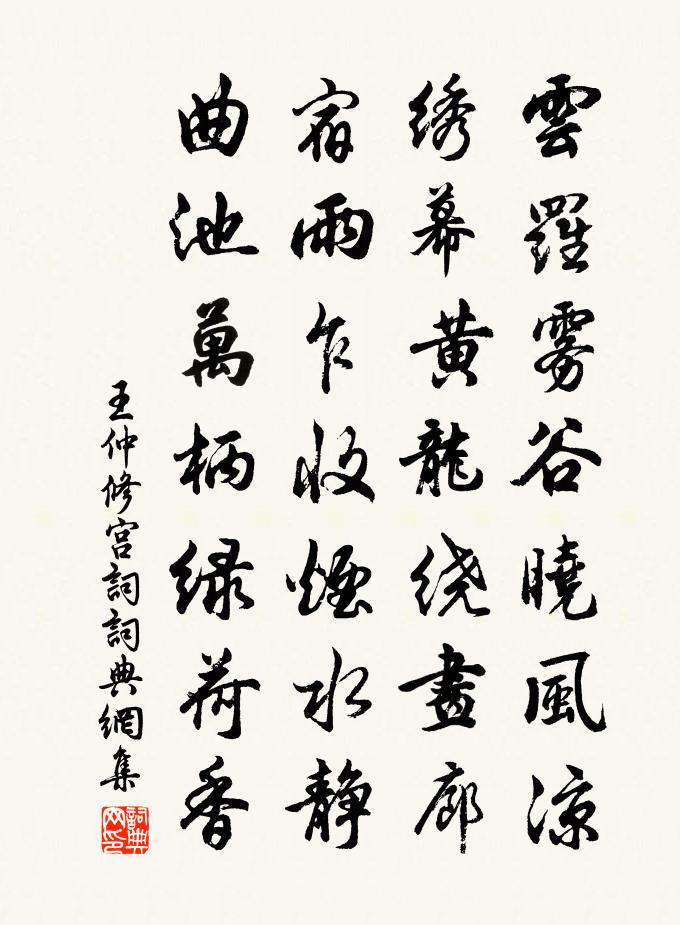 雲羅雾谷曉風涼
绣幕黃龍绕畫廊
宿雨乍收煙水靜
曲池萬柄绿荷香
王仲修宫詞詞典網集
詞典网印